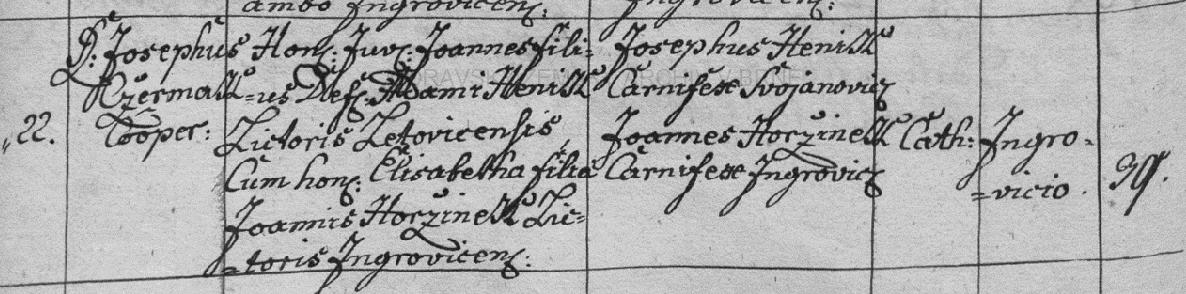 ambo Ingrovicens:
Ingrovicens:
22.
P: Josephus
Czermak
Cooper:
Hon: Juv: Joannes fili-
=us Def: Adami Henik
Lictoris Letovicensis
Cum hon: Elisabetha filia
Joannis Horzinek Lic=
=toris Ingrovicens:
Josephus Henik
Carnifex Svojanovic:
Joannes Horzinek
Carnifex Ingrovic:
Cath:
Ingro-
=vicio.
39.